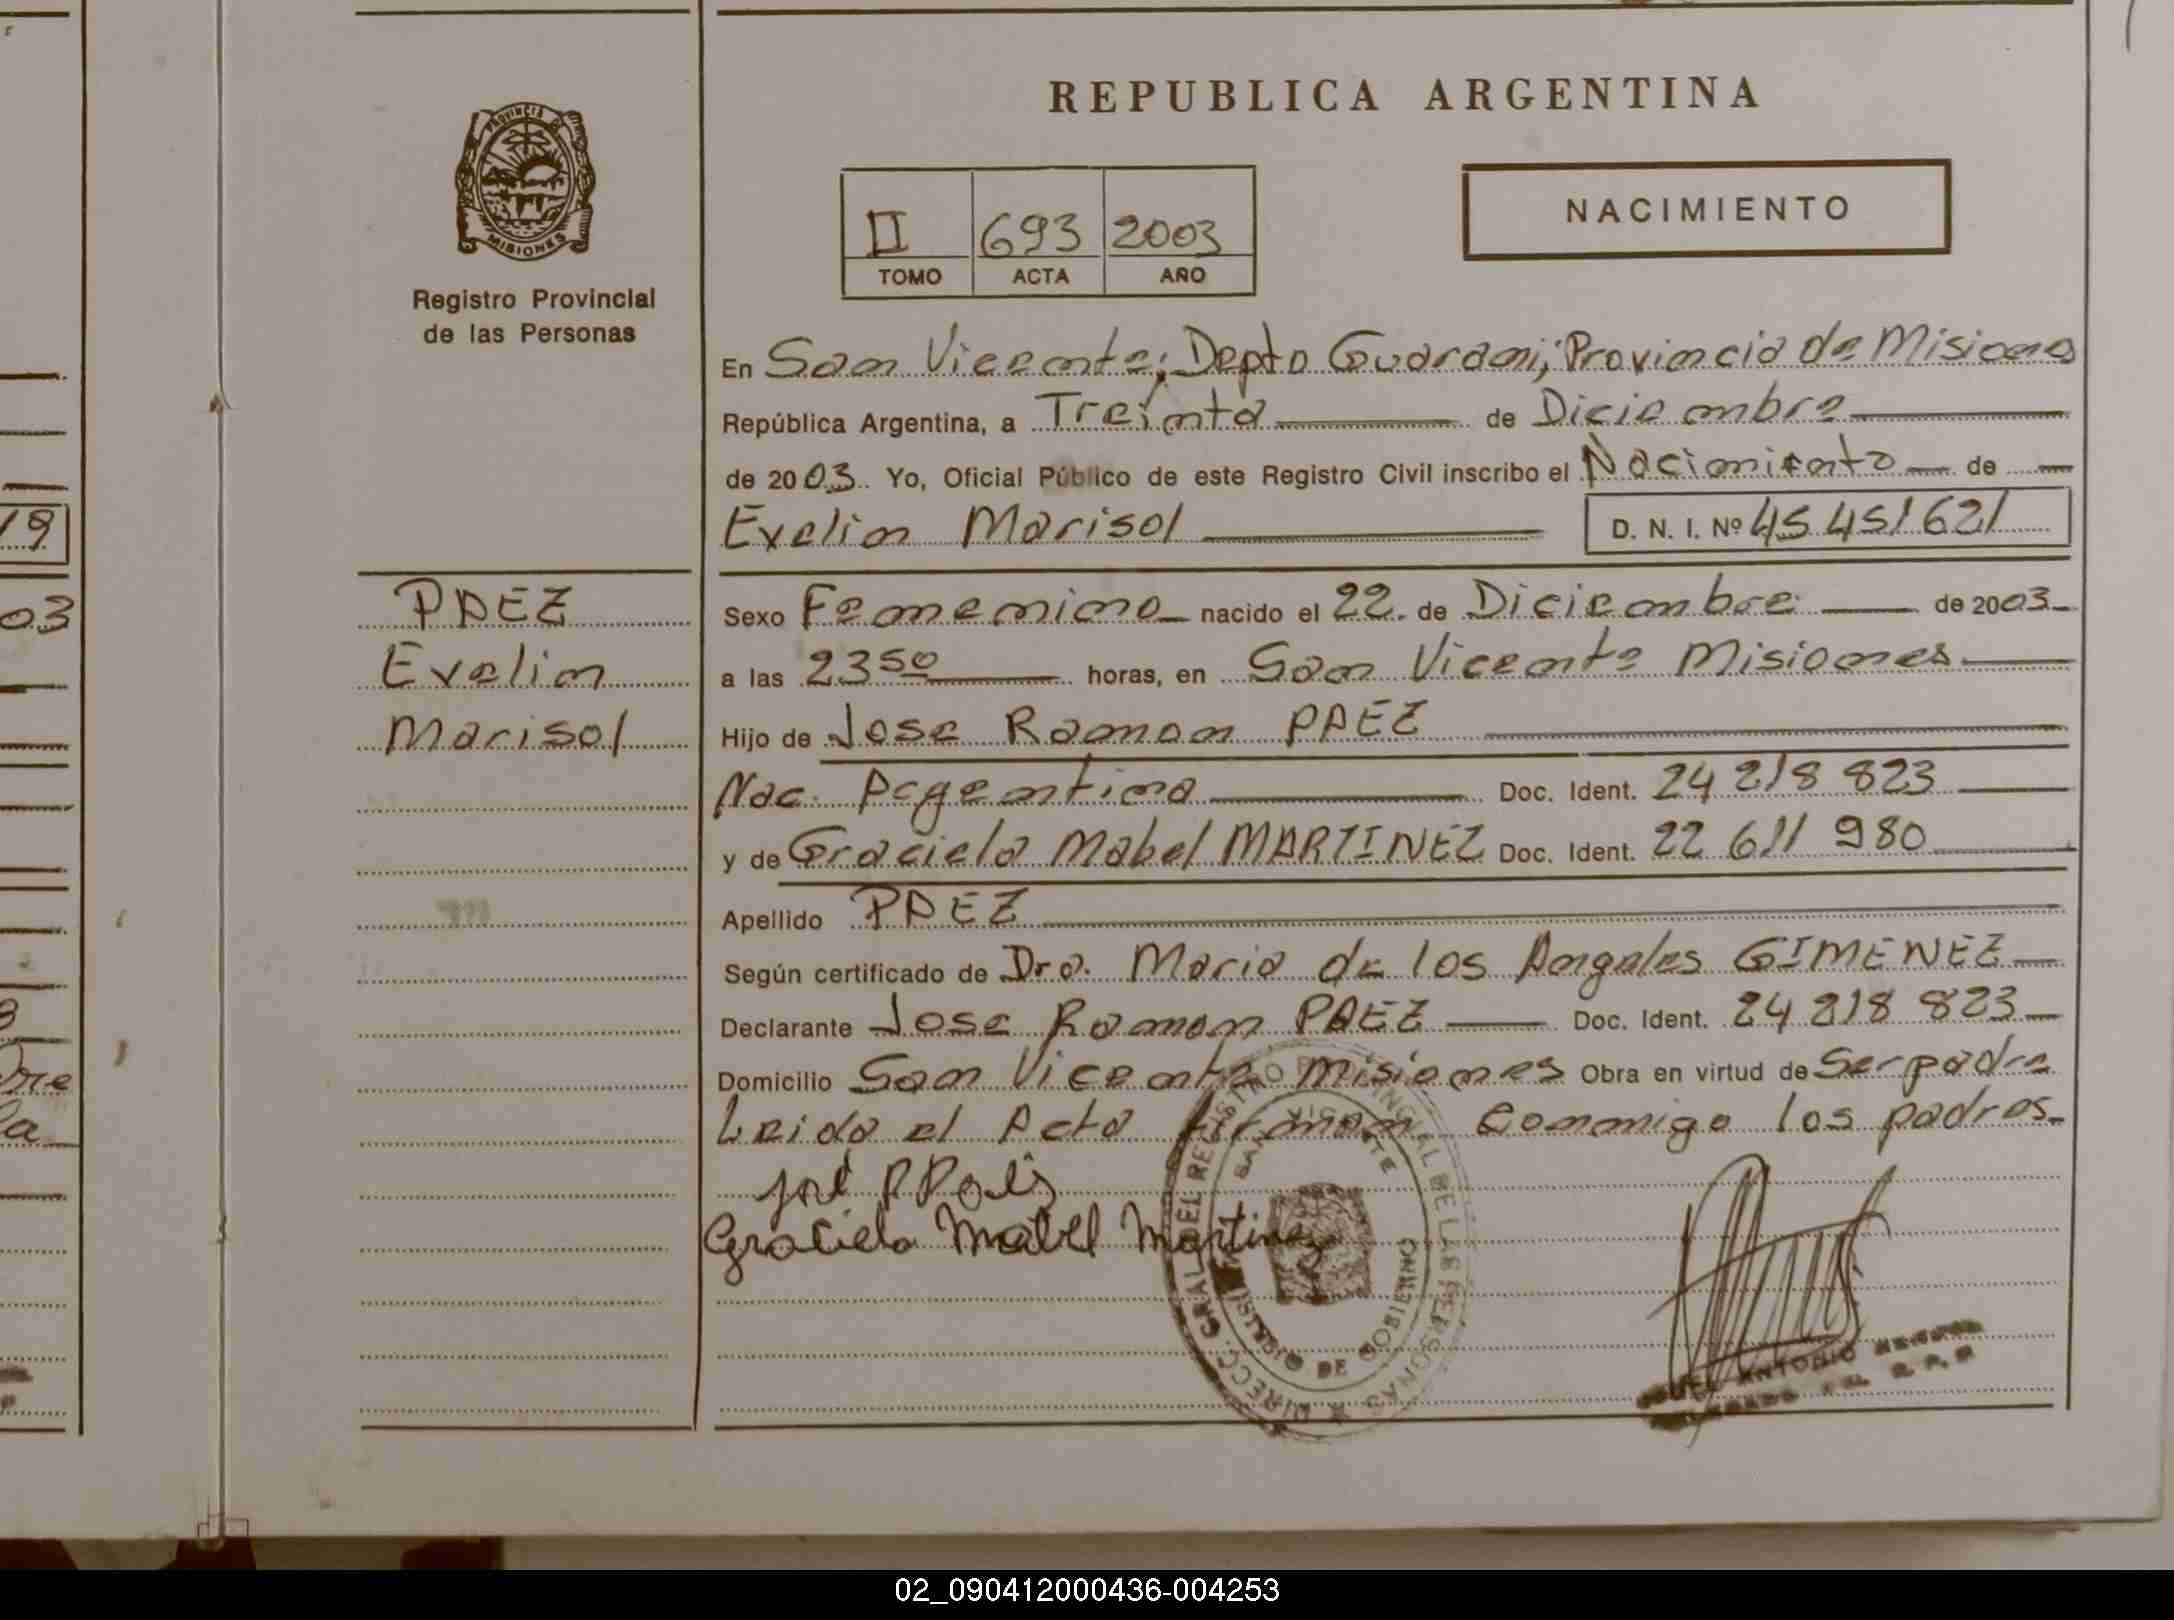 REPUBLICA ARGENTINA
PROVINCIA DE
MISIONES
Registro Provincial
de las Personas
II 693 2003
TOMO ACTA AÑO
NACIMIENTO
En San Vicente; Depto Guarani; Provincia de Misiones
República Argentina, a Treinta de Diciembre
de 2003. Yo, Oficial Público de este Registro Civil inscribo el Nacimiento de
Evelin Marisol D. N. I. Nº 45 451 621
PAEZ
Evelin
Marisol
Sexo Femenino nacido el 22. de Diciembre de 2003
a las 23 50 horas, en San Vicente Misiones
Hijo de Jose Ramon PAEZ
Nac. Argentina Doc. Ident. 24 218 823
y de Graciela Mabel MARTINEZ Doc. Ident. 22 611 980
Apellido PAEZ
Según certificado de Dra. Maria de los Angeles GIMENEZ
Declarante Jose Ramon PAEZ Doc. Ident. 24 218 823
Domicilio San Vicente Misiones Obra en virtud de Ser padre
Leido el Acta firman conmigo los padres
Graciela Mabel Martinez
DIRECC. GRAL DEL REGISTRO PROVINCIAL DE LAS PERSONAS
SAN VICENTE
MINISTERIO DE GOBIERNO
ANTONIO
R. P. P.
19
03
02_090412000436-004253